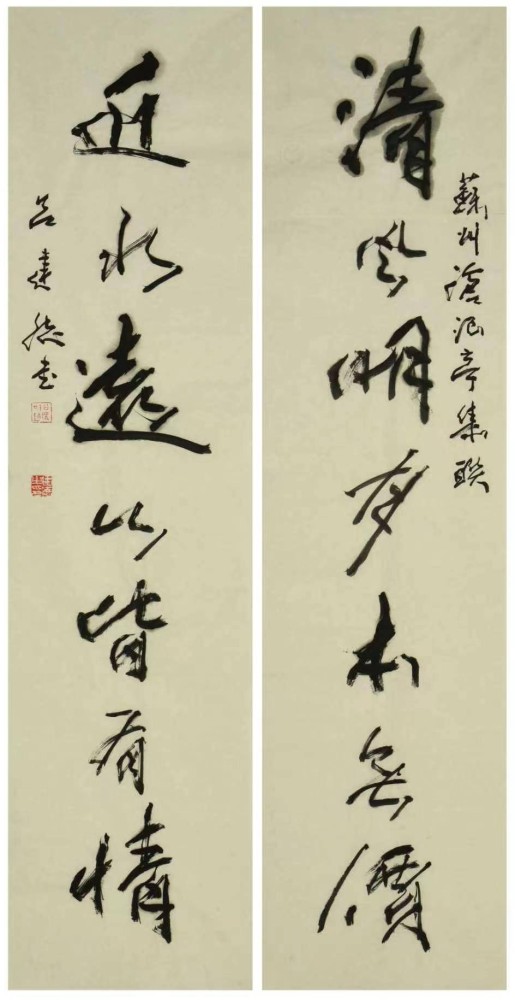 蘇州滄浪亭集聯
清風明月本無價
近水遠山皆有情
吕建德书